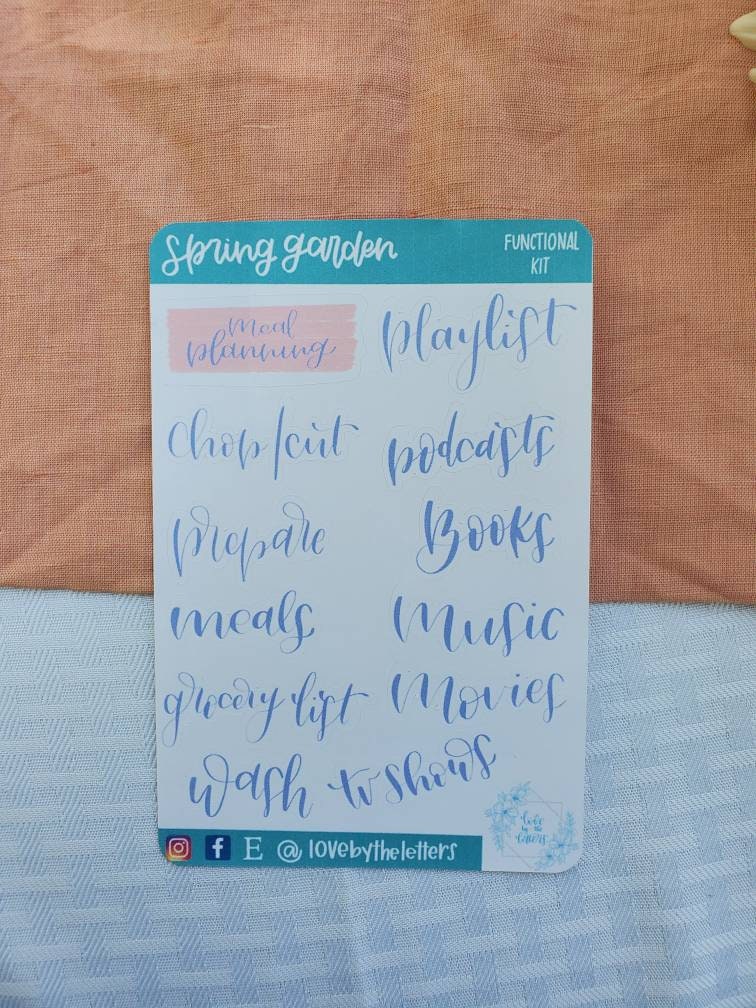 spring garden
FUNCTIONAL
KIT
meal
planning
playlist
chop/cut
podcasts
prepare
Books
meals
Music
grocery list
Movies
wash
tv shows
love
by the
letters
E @ lovebytheletters